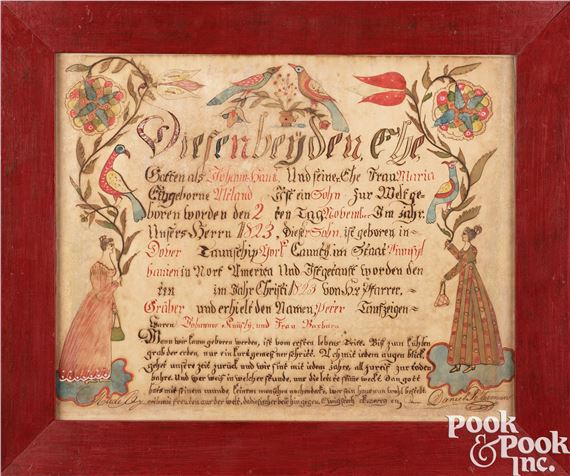 Diesen beyden Ehe
Gatten als Johann Haui Und seine Ehe Frau Maria
Eingeborne Ist ein Sohn Zur Welt ge-
boren worden den 2 ten Tag Novemb. Im Jahr
Unsers Herrn 1823. Dieser Sohn ist geboren in
Dover Taunschip York Caunty im Staat Pennsyl
vanien in Nort America Und Ist getauft worden den
ten im Jahr Christi 1823 von Hr Pfarrer
Gruber und erhielt den Namen, Peter Taufzeugen
waren Johannes und Frau Barbara
Wenn wir kaum geboren werden, ist vom ersten lebens Tritt Bis zum kühlen
grab der erden nur ein kurz gemeßner schritt. Ach mit jedem augen blick
gehet unsere zeit zurück und wir sind mit jedem all zureif zur todten
bahre. Und wer weis in welcher stunde, uns die letzte stimme wecke. Dan gott
hats mit seinem munde keinem menschen noch endeckt, wer sein haus nun wohl bestelt
mit freuden aus der welt, die sicherheit hingegen Ewigs sterben en
Made By Daniel Peterman
Pook
& Pook
Inc.